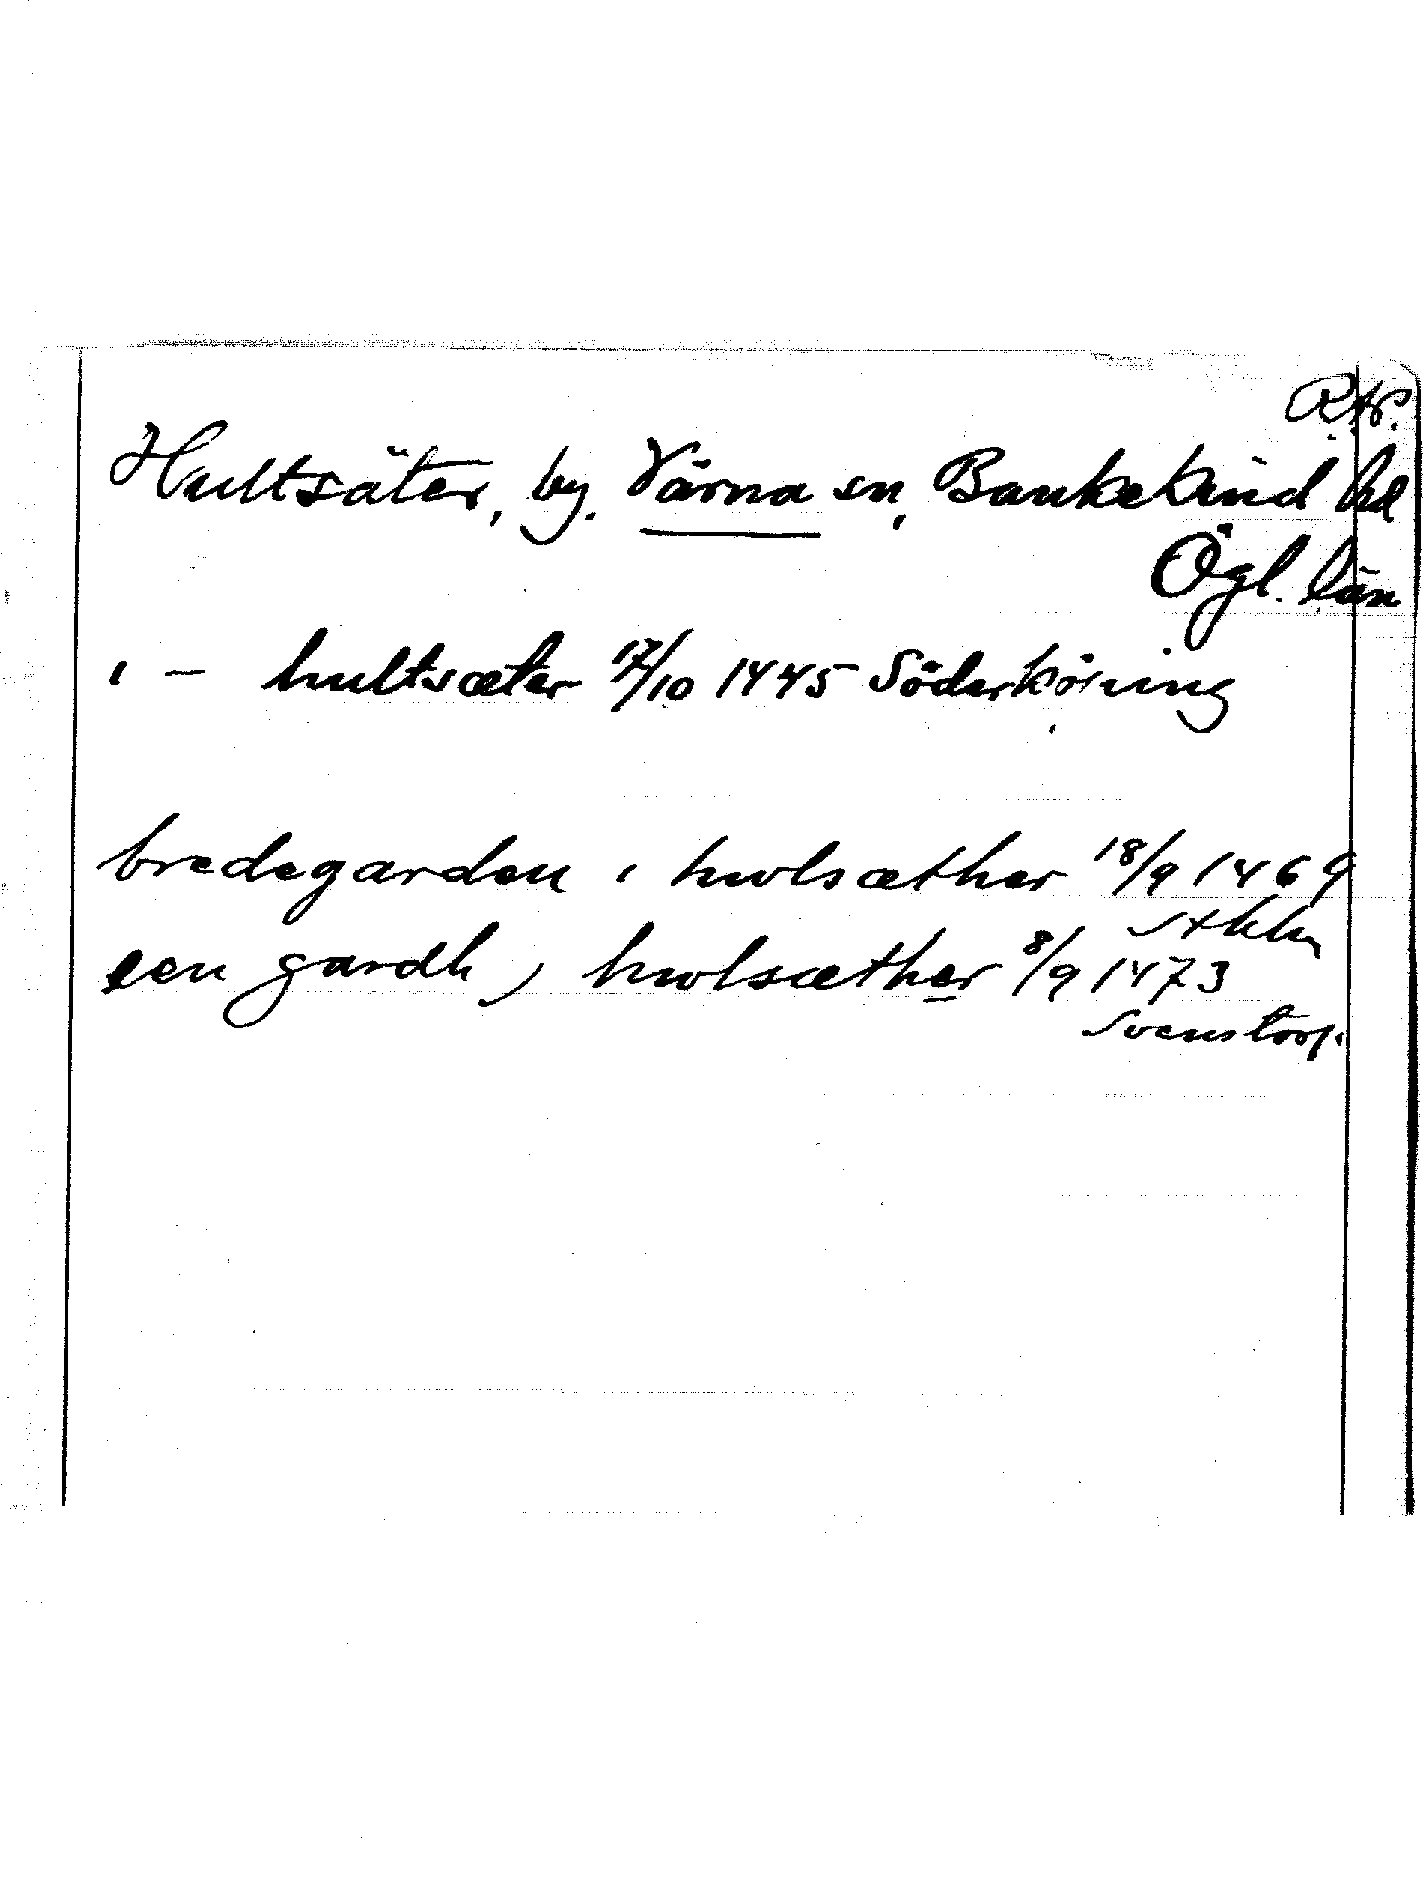 R.A.P.
Hultsäter, by. Värna sn, Bankekind hd
Ögl. län
i — hultsæter 17/10 1445 Söderköping
bredegarden i hwlsæther 18/9 1469
Sthlm
een gardh j hwlsæther 8/9 1473
Svenstorp.